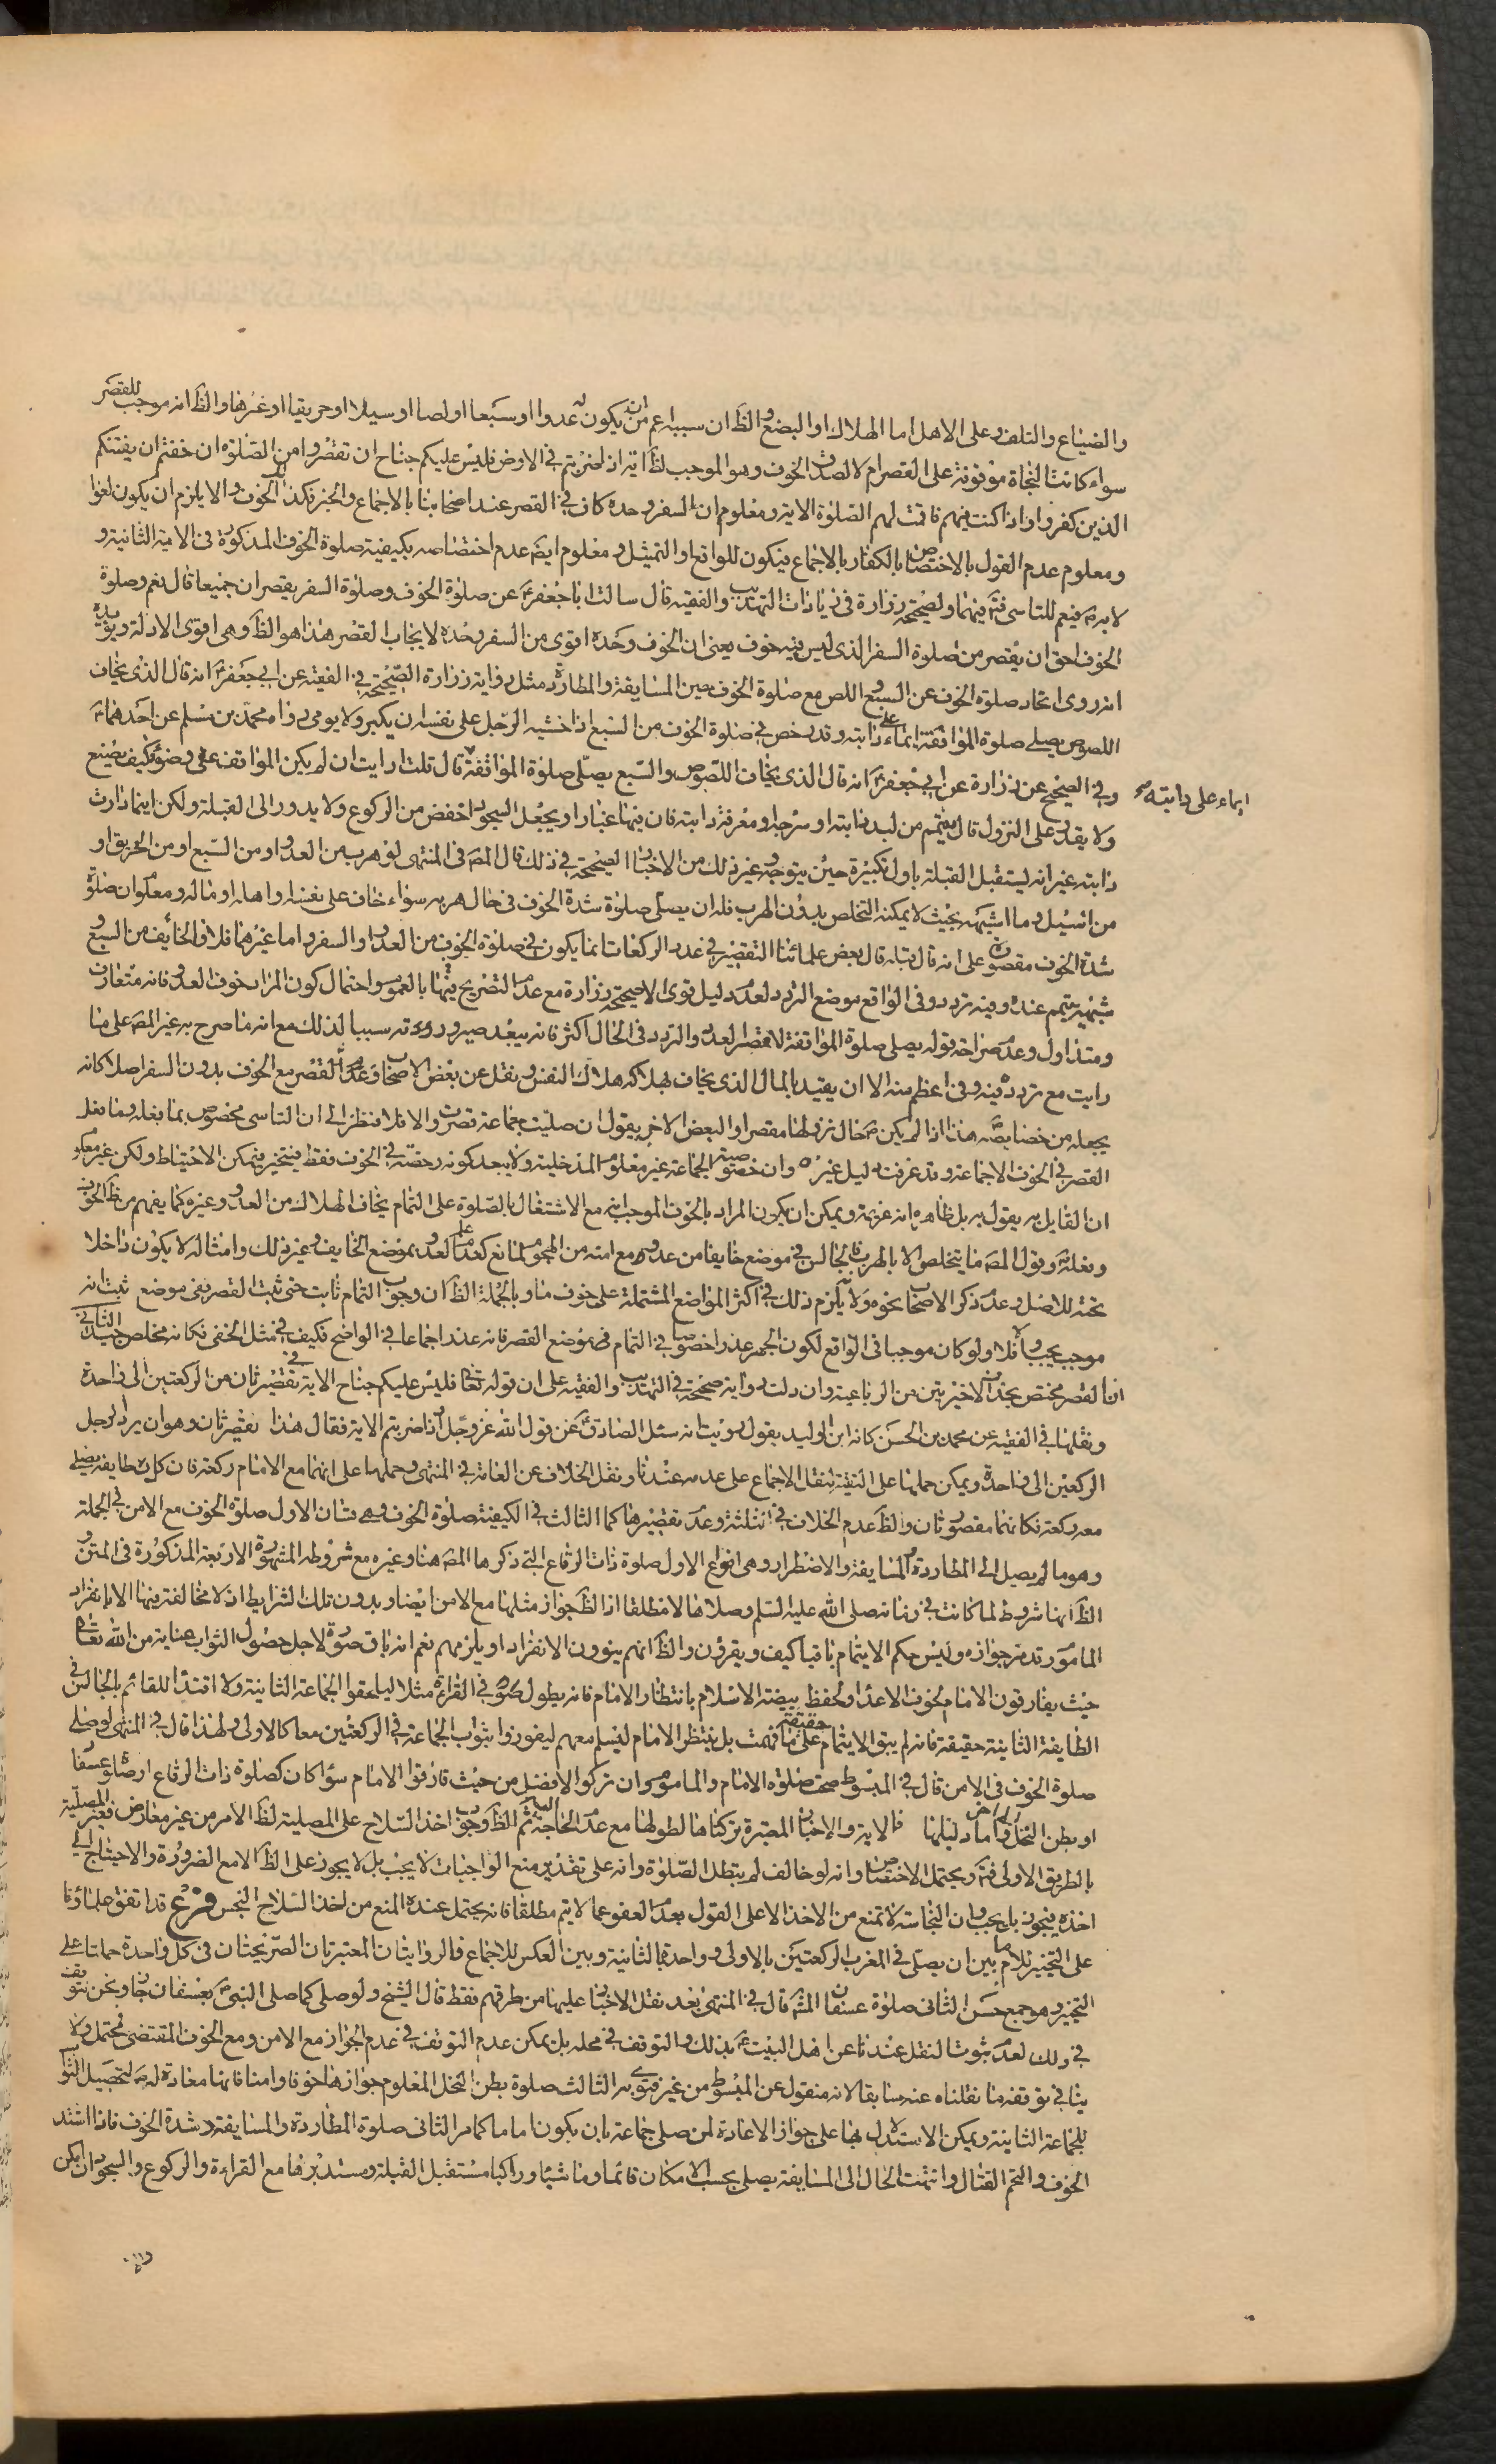 والضياع والتلف وعلى الاهل اما الهلاك او البضع والظ ان سببه اعم من ان يكون عدوا او سبعا او لصا او سيلا او حريقا او غيرها والظ انه موجب للقصر
سواء كانت النجاة موقوفة على القصر ام لا لصدق الخوف وهو الموجب لظ اية اذا ضربتم في الارض فليس عليكم جناح ان تقصروا من الصلوة ان خفتم ان يفتنكم
الذين كفروا واذا كنت فيهم فاقمت لهم الصلوة الاية ومعلوم ان السفر وحده كاف في القصر عند اصحابنا بالاجماع والخبر فكذا الخوف والا يلزم ان يكون لغوا
ومعلوم عدم القول بالاختصاص بالكفار بالاجماع فيكون للواقع او التمثيل ومعلوم ايضا عدم اختصاصه بكيفية صلوة الخوف المذكورة في الاية الثانية و
لا به ص فيعم للتاسي فتم فيهما ولصحيحة زرارة في زيادات التهذيب والفقيه قال سالت ابا جعفر ع عن صلوة الخوف وصلوة السفر يقصران جميعا قال نعم وصلوة
الخوف احق ان يقصر من صلوة السفر الذي ليس فيه خوف يعني ان الخوف وحده اقوى من السفر وحده لايجاب القصر هذا هو الظ وهي اقوى الادلة ويؤيده
انه روى اتحاد صلوة الخوف عن السبع واللص مع صلوة الخوف حين المسايفة والمطاردة مثل رواية زرارة الصحيحة في الفقيه عن ابي جعفر ع انه قال الذي يخاف
اللصوص يصلي صلوة المواقفة ايماء على دابته وقد رخص في صلوة الخوف من السبع اذا خشيه الرجل على نفسه ان يكبر ولا يومي رواه محمد بن مسلم عن احدهما ع
وفي الصحيح عن زرارة عن ابي جعفر ع انه قال الذي يخاف اللصوص والسبع يصلي صلوة المواقفة قال قلت ارايت ان لم يكن المواقف على وضوء كيف يصنع
ايماء على دابته صح
ولا يقدر على النزول قال يتيمم من لبد دابته او سرجه او معرفة دابته فان فيها غبارا ويجعل السجود اخفض من الركوع ولا يدور الى القبلة ولكن اينما دارت
دابته غير انه يستقبل القبلة باول تكبيرة حين يتوجه وغير ذلك من الاخبار الصحيحة في ذلك قال المص في المنتهى لو هرب من العدو او من السبع او من الحريق او
من السيل وما اشبهه بحيث لا يمكنه التخلص بدون الهرب فله ان يصلي صلوة شدة الخوف في حال هربه سواء خاف على نفسه او اهله او ماله ومعلوم ان صلوة
شدة الخوف مقصورة على انه قال قبله قال بعض علمائنا التقصير في عدد الركعات انما يكون في صلوة الخوف من العدو او السفر واما غيرهما فلا فالخائف من السبع و
شبهه يتمم عنده وفيه تردد وفي الواقع موضع التردد لعدم دليل قوى الا صحيحة زرارة مع عدم التصريح فيها بالعموم واحتمال كون المراد خوف العدو فانه متعارف
ومتداول وعدم صراحة قوله يصلي صلوة المواقفة لا مقصر لعدد والتردد في الحال اكثر فانه يبعد صيرورته سببا لذلك مع انه ما صرح به غير المص على ما
رايت مع تردده فيه وفي اعظم منه الا ان يقيد بالمال الذي يخاف بهلاكه هلاك النفس ونقل عن بعض الاصحاب عدم القصر مع الخوف بدون السفر اصلا كانه
يجعله من خصايصه ص هذا اذا لم يكن ص حال نزولها مقصرا والبعض الاخر يقول ان صليت جماعة قصرت والا فلا نظرا الى ان التاسي مخصوص بما فعله وما فعل
القصر في الخوف الا جماعة وقد عرفت دليل غيره وان خصوصية الجماعة غير معلوم المدخلية ولا يبعد كونه رخصة في الخوف فقط فيتخير فيمكن الاحتياط ولكن غير معلوم
ان القايل به يقول به بل ظاهره انه عزيمة ويمكن ان يكون المراد بالخوف الموجب انه مع الاشتغال بالصلوة على التمام يخاف الهلاك من العدو وغيره كما يفهم من ظ الخوف
وفعله ع وقول المص ما يتخلص الا بالهرب فالجالس في موضع خايفا من عدوه مع امنه من الهجوم لمانع كعدم علم العدو بموضع الخايف وغير ذلك وامثاله لا يكون داخلا
تحته للاصل وعدم ذكر الاصحاب نحوه ولا يلزم ذلك في اكثر المواضع المشتملة على خوف ما وبالجملة الظ ان وجوب التمام ثابت حتى ثبت القصر ففي موضع ثبت انه
موجب يجب والا فلا ولو كان موجبا في الواقع لكون الجهر عذرا خصوصا في التمام في موضع القصر فانه عند اجماعا في الواضح فكيف في مثل الخفي فكانه مخلص حينئذ الثاني
ان القصر مختص بحذف الاخيرتين من الرباعية وان دلت رواية صحيحة في التهذيب والفقيه على ان قوله تعالى فليس عليكم جناح الاية في تقصير ثان من الركعتين الى واحدة
ونقلها في الفقيه عن محمد بن الحسن كانه ابن الوليد يقول رويت انه سئل الصادق ع عن قول الله عز وجل اذا ضربتم الاية فقال هذا تقصير ثان وهو ان يرد الرجل
الركعتين الى واحدة ويمكن حملها على التقية لنقل الاجماع على عدمه عندنا ونقل الخلاف عن العامة في المنتهى وحملها على انهما مع الامام ركعة فان كل طايفة يصلي
معه ركعة فكانهما مقصورتان والظ عدم الخلاف في الثلثة وعدم تقصيرها كما الثالث في الكيفية صلوة الخوف وهي قسمان الاول صلوة الخوف مع الامن في الجملة
وهو ما لم يصل الى المطاردة والمسايفة والاضطرار وهي انواع الاول صلوة ذات الرقاع التي ذكرها المص هنا وغيره مع شروطه المشهورة الاربعة المذكورة في المتن و
الظ انها شروط لما كانت في زمانه صلى الله عليه السلم وصلاها لا مطلقا اذ الظ جواز مثلها مع الامن ايضا وبدون تلك الشرايط اذ لا مخالفة فيها الا بانفراد
الماموم وقد مر جوازه وليس حكم الايتمام باقيا كيف ويقرؤن والظ انهم ينوون الانفراد او يلزمهم نعم انه باق صورة لاجل حصول الثواب عناية من الله تعالى
حيث يفارقون الامام لخوف الاعداء ولحفظ بيضة الاسلام بانتظار الامام فانه يطول في القراءة مثلا ليلحقوا الجماعة الثانية ولا اقتداء للقائم بالجالس في
الطايفة الثانية حقيقة فانه لم يبق الايتمام حقيقة على ما فهمت بل ينتظر الامام ليسلم معهم ليفوزوا بثواب الجماعة في الركعتين معا كالاولى ولهذا قال في المنتهى لو صلى
صلوة الخوف في الامن قال في المبسوط صحت صلوة الامام والماموم وان تركوا الافضل من حيث فارقوا الامام سواء كان كصلوة ذات الرقاع او صلوة عسفان
او بطن النخل واما دليلها فالاية والاخبار المعتبرة تركناها لطولها مع عدم الحاجة ثم الظ وجوب اخذ السلاح على المصلية لظ الامر من غير معارض فغير المصلية
بالطريق الاولى فتم ويحتمل الاختصاص وانه لو خالف لم يبطل الصلوة وانه على تقدير منع الواجبات لا يجب بل لا يجوز على الظ الا مع الضرورة والاحتياج الى
اخذه فيجوز بل يجب وان النجاسة لا تمنع من الاخذ الا على القول بعدم العفو عما لا يتم مطلقا فانه يحتمل عنده المنع من اخذ السلاح النجس فرع قد اتفق علماؤنا
على التخيير للامام بين ان يصلي في المغرب الركعتين بالاولى وواحدة بالثانية وبين العكس للاجماع فالروايتان المعتبرتان الصريحتان في كل واحدة حملتا على
التخيير وهو جمع حسن الثاني صلوة عسفان المشه قال في المنتهى بعد نقل الاخبار عليها من طرقهم فقط قال الشيخ ولو صلى كما صلى النبي ص بعسفان جاز ونحن نتوقف
في ذلك لعدم ثبوت النقل عندنا عن اهل البيت ع بذلك والتوقف في محله بل يمكن عدم التوقف في عدم الجواز مع الامن ومع الخوف المقتضى محتمل ولا
ينافي توقفه ما نقلناه عنه سابقا لانه منقول عن المبسوط من غير فتوى به الثالث صلوة بطن النخل المعلوم جوازها خوفا وامنا فانها معادة له ص لتحصيل الثواب
للجماعة الثانية ويمكن الاستدلال بها على جواز الاعادة لمن صلى جماعة بان يكون اماما كما مر الثاني صلوة المطاردة والمسايفة وشدة الخوف فاذا اشتد
الخوف والتحم القتال وانتهت الحال الى المسايفة يصلي بحسب الامكان قائما وماشيا وراكبا مستقبل القبلة ومستدبرها مع القراءة والركوع والسجود ان امكن